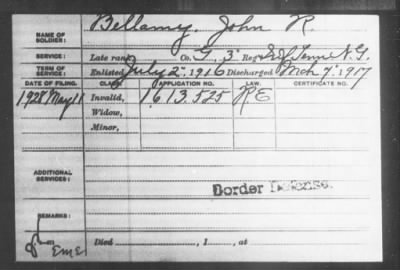 NAME OF SOLDIER: Bellamy, John R.
SERVICE: Late rank, Co. G, 3" Reg't Inf Tenn N.G.
TERM OF SERVICE: Enlisted July 2", 1916 Discharged Mch 7", 1917
DATE OF FILING. CLASS. APPLICATION NO. LAW. CERTIFICATE NO.
1928 May 11 Invalid, 1.613.525 RE
Widow,
Minor,
ADDITIONAL SERVICES:
Border Defense.
REMARKS:
Died , 1 , at